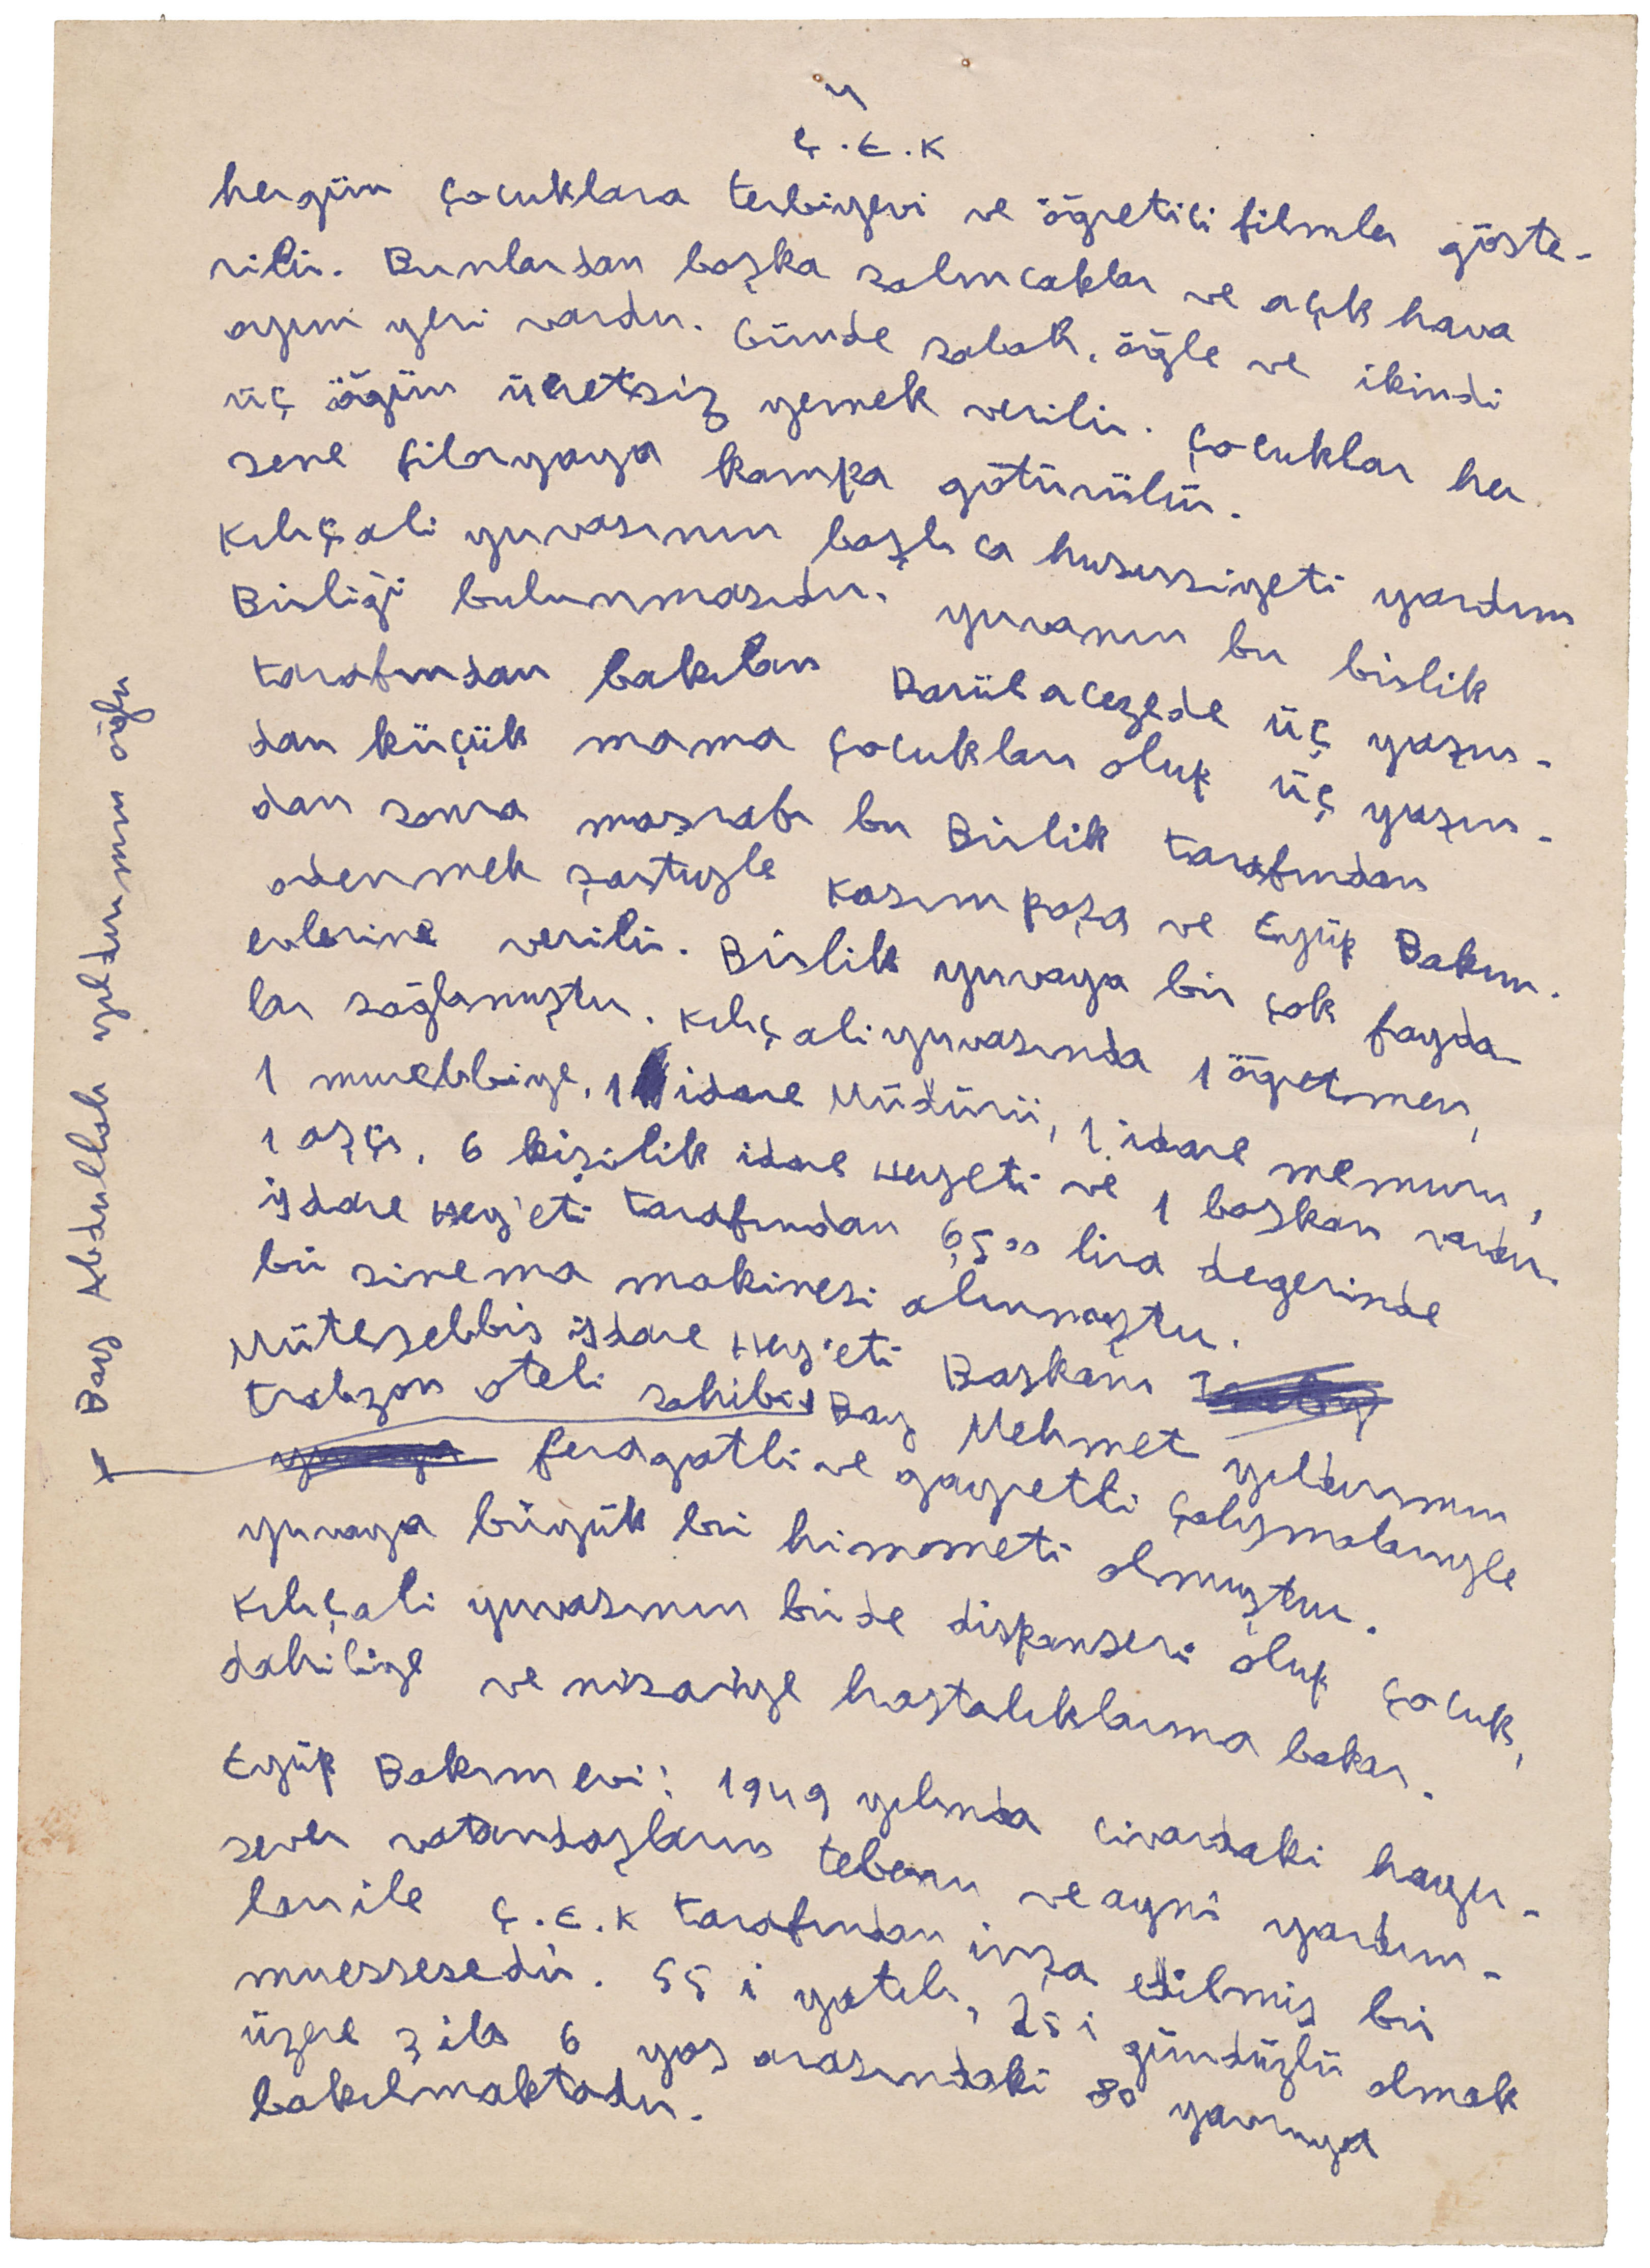 4
Ç.E.K
hergün çocuklara terbiyevi ve öğretici filmler göste-
rilir. Bunlardan başka salıncaklar ve açık hava
oyun yeri vardır. Günde sabah, öğle ve ikindi
üç öğün ücretsiz yemek verilir. Çocuklar her
sene filoryaya kampa götürülür.
Kılıçali yuvasının başlıca hususiyeti yardım
Birliği bulunmasıdır. yuvanın bu birlik
tarafından bakılan Darülacezede üç yaşın-
dan küçük mama çocukları olup üç yaşın-
dan sonra masrafı bu Birlik tarafından
ödenmek şartıyle Kasımpaşa ve Eyüp Bakım-
evlerine verilir. Birlik yuvaya bir çok fayda-
lar sağlamıştır. Kılıçali yuvasında 1 öğretmen,
1 murebbiye, 1 idare Müdürü, 1 idare memuru,
1 aşçı, 6 kişilik idare Heyeti ve 1 başkan vardır.
İdare Hey'eti tarafından 6,500 lira degerinde
bir sinema makinesi alınmıştır.
Müteşebbis İdare Hey'eti Başkanı
trabzon oteli sahibi Bay Mehmet yıldırımın
feragatli ve gayretli çalışmalarıyle
yuvaya büyük bir himmeti olmuştur.
Kılıçali yuvasının birde dispanseri olup çocuk,
dahiliye ve nisaiye hastalıklarına bakar.
Eyüp Bakımevi: 1949 yılında civardaki hayır-
sever vatandaşların teberru ve ayni yardım-
ları ile Ç.E.K tarafından inşa edilmiş bir
muessesedir. 55 i yatılı, 25 i gündüzlü olmak
üzere 3 ila 6 yaş arasındaki 80 yavruya
bakılmaktadır.
Bay Abdullah yıldırımın oğlu